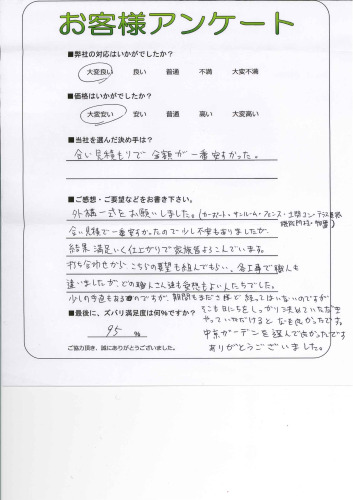 お客様アンケート
■弊社の対応はいかがでしたか?
大変良い 良い 普通 不満 大変不満
■価格はいかがでしたか?
大変安い 安い 普通 高い 大変高い
■当社を選んだ決め手は?
合い見積もりで金額が一番安すかった。
■ご感想・ご要望などをお書き下さい。
外構一式をお願いしました。(カーポート・サンルーム・フェンス・土間コン・テラス屋根
合い見積で一番安すかったので少し不安もありましたが
結果満足いく仕上がりで家族皆よろこんでいます。
打ち合わせから、こちらの要望も組んでもらい、各工事で職人も
違いましたが、どの職人さん達も愛想もよい人たちでした。
少しの手直もあるのですが、期間もまださ様で経ってはいないのですが
そこも日にちをしっかり決めていただき
やっていただけるとなお良かったです。
■最後に、ズバリ満足度は何%ですか?
95 %
中京ガーデンを選んで良かったです
ありがとうございました。
ご協力頂き、誠にありがとうございました。